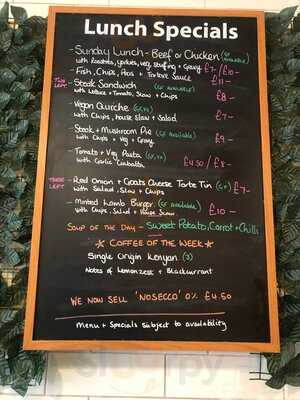 Lunch Specials
- Sunday Lunch - Beef or Chicken (GF AVAILABLE)
with Roasties, Yorkies, veg, stuffing + Gravy £7-/£10-
- Fish, Chips, Peas + Tartare Sauce £11-
TWO LEFT - Steak Sandwich (GF AVAILABLE)
with Lettuce + Tomato, Slaw + Chips £8-
- Vegan Quiche (GF, VE)
with Chips, house Slaw + Salad £7-
- Steak + Mushroom Pie (GF Available)
with Chips + Veg + Gravy £9-
- Tomato + Veg Pasta
with Garlic Ciabatta £4.50/£8-
THREE LEFT - Red Onion + Goats Cheese Tarte Tin (GF) £7-
with Salad, Slaw + Chips
- Minted Lamb Burger (GF AVAILABLE)
with Chips, Salad + House Slaw £10-
SOUP OF THE DAY - Sweet Potato, Carrot + Chilli
COFFEE OF THE WEEK
Single Origin Kenyan (3)
Notes of Lemonzest + Blackcurrant
WE NOW SELL 'NOSECCO' 0% £4.50
Menu + Specials subject to availability